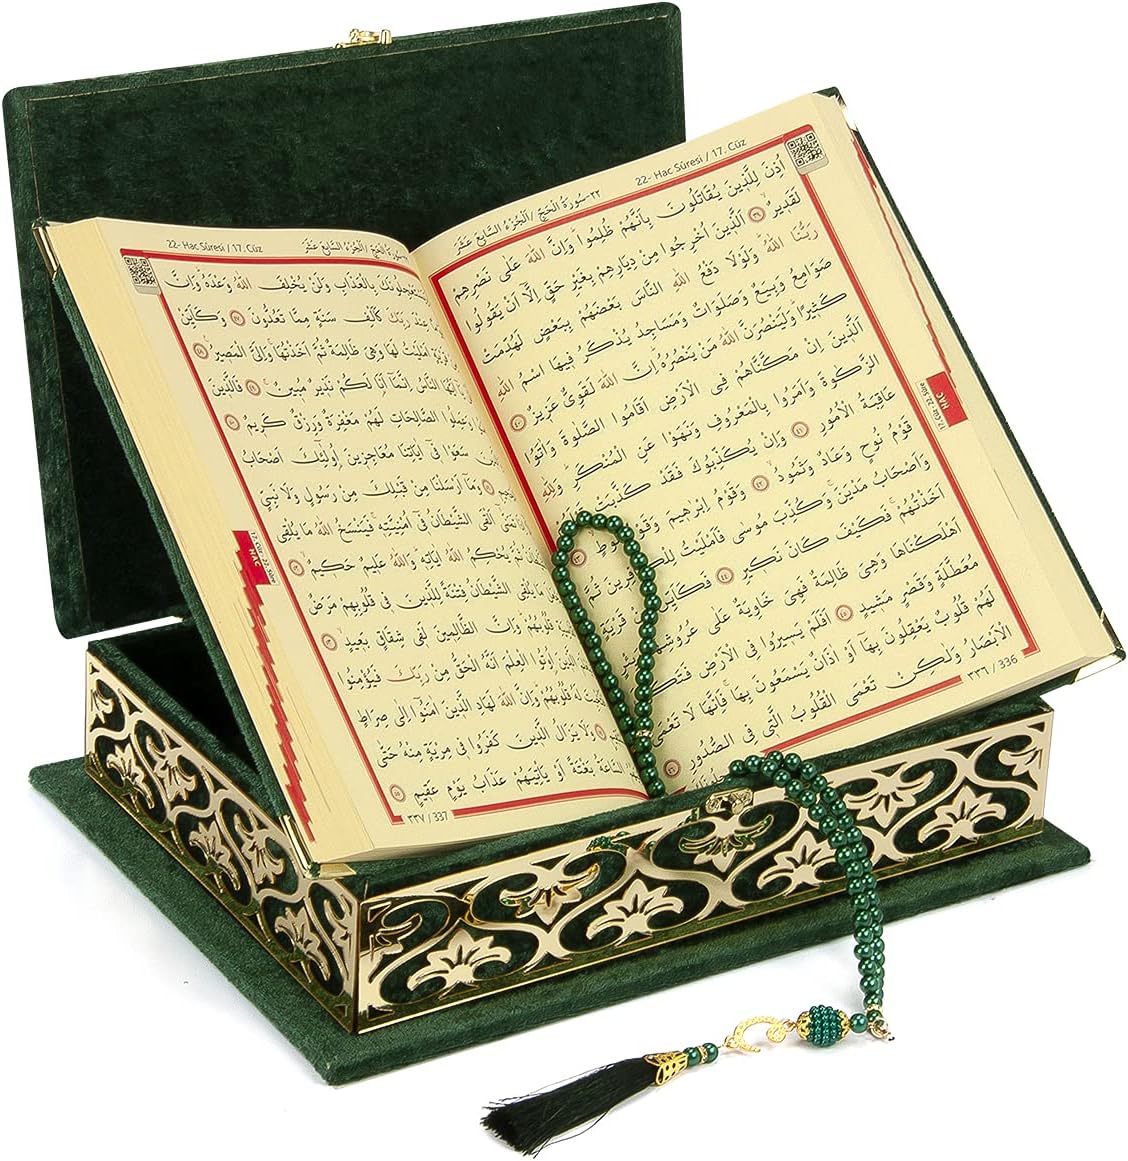 ٢٢-سُورَةُ الْحَجِّ /اَلْجُزْءُ السَّابِعَ عَشَرَ 22- Hac Sûresi / 17. Cüz
اُذِنَ لِلَّذِينَ يُقَاتَلُونَ بِاَنَّهُمْ ظُلِمُوا وَاِنَّ اللّٰهَ عَلٰى نَصْرِهِمْ
لَقَدِيرٌ ٣٩ اَلَّذِينَ اُخْرِجُوا مِنْ دِيَارِهِمْ بِغَيْرِ حَقٍّ اِلَّا اَنْ يَقُولُوا
رَبُّنَا اللّٰهُ وَلَوْلَا دَفْعُ اللّٰهِ النَّاسَ بَعْضَهُمْ بِبَعْضٍ لَهُدِّمَتْ
صَوَامِعُ وَبِيَعٌ وَصَلَوَاتٌ وَمَسَاجِدُ يُذْكَرُ فِيهَا اسْمُ اللّٰهِ
كَثِيرًا وَلَيَنْصُرَنَّ اللّٰهُ مَنْ يَنْصُرُهُ اِنَّ اللّٰهَ لَقَوِيٌّ عَزِيزٌ ٤٠
اَلَّذِينَ اِنْ مَكَّنَّاهُمْ فِي الْاَرْضِ اَقَامُوا الصَّلٰوةَ وَاٰتَوُا
الزَّكٰوةَ وَاَمَرُوا بِالْمَعْرُوفِ وَنَهَوْا عَنِ الْمُنْكَرِ وَلِلّٰهِ
عَاقِبَةُ الْاُمُورِ ٤١ وَاِنْ يُكَذِّبُوكَ فَقَدْ كَذَّبَتْ
قَوْمُ نُوحٍ وَعَادٌ وَثَمُودُ ٤٢ وَقَوْمُ اِبْرٰهِيمَ ٤٣
وَاَصْحَابُ مَدْيَنَ وَكُذِّبَ مُوسٰى فَاَمْلَيْتُ
اَخَذْتُهُمْ فَكَيْفَ كَانَ نَكِيرِ ٤٤ قَرْيَةٍ
اَهْلَكْنَاهَا وَهِيَ ظَالِمَةٌ فَهِيَ خَاوِيَةٌ عَلٰى
مُعَطَّلَةٍ وَقَصْرٍ مَشِيدٍ ٤٥ اَفَلَمْ يَسِيرُوا فِي الْاَرْضِ
لَهُمْ قُلُوبٌ يَعْقِلُونَ بِهَا اَوْ اٰذَانٌ يَسْمَعُونَ بِهَا فَاِنَّهَا لَا تَعْمَى
الْاَبْصَارُ وَلٰكِنْ تَعْمَى الْقُلُوبُ الَّتِي فِي الصُّدُورِ ٤٦
٣٣٦ / 336
17. Cüz - 22. Sûre
HAC
22- Hac Sûresi / 17. Cüz سُورَةُ الْحَجِّ /اَلْجُزْءُ السَّابِعَ عَشَرَ
بِالْعَذَابِ وَلَنْ يُخْلِفَ اللّٰهُ وَعْدَهُ وَاِنَّ
عِنْدَ رَبِّكَ كَاَلْفِ سَنَةٍ مِمَّا تَعُدُّونَ ٤٧ وَكَاَيِّنْ
اَمْلَيْتُ لَهَا وَهِيَ ظَالِمَةٌ ثُمَّ اَخَذْتُهَا وَاِلَيَّ الْمَصِيرُ ٤٨
النَّاسُ اِنَّمَا اَنَا لَكُمْ نَذِيرٌ مُبِينٌ ٤٩ فَالَّذِينَ
وَعَمِلُوا الصَّالِحَاتِ لَهُمْ مَغْفِرَةٌ وَرِزْقٌ كَرِيمٌ ٥٠
سَعَوْا فِي اٰيَاتِنَا مُعَاجِزِينَ اُولٰئِكَ اَصْحَابُ
٥١ وَمَا اَرْسَلْنَا مِنْ قَبْلِكَ مِنْ رَسُولٍ وَلَا نَبِيٍّ
تَمَنّٰى اَلْقَى الشَّيْطَانُ فِي اُمْنِيَّتِهِ فَيَنْسَخُ اللّٰهُ مَا يُلْقِي
يُحْكِمُ اللّٰهُ اٰيَاتِهِ وَاللّٰهُ عَلِيمٌ حَكِيمٌ ٥٢
مَا يُلْقِي الشَّيْطَانُ فِتْنَةً لِلَّذِينَ فِي قُلُوبِهِمْ مَرَضٌ
قُلُوبُهُمْ وَاِنَّ الظَّالِمِينَ لَفِي شِقَاقٍ بَعِيدٍ ٥٣
اُوتُوا الْعِلْمَ اَنَّهُ الْحَقُّ مِنْ رَبِّكَ فَيُؤْمِنُوا
لَهُ قُلُوبُهُمْ وَاِنَّ اللّٰهَ لَهَادِ الَّذِينَ اٰمَنُوا اِلٰى صِرَاطٍ
٥٤ وَلَا يَزَالُ الَّذِينَ كَفَرُوا فِي مِرْيَةٍ مِنْهُ حَتّٰى
بَغْتَةً اَوْ يَأْتِيَهُمْ عَذَابُ يَوْمٍ عَقِيمٍ ٥٥
٣٣٧ / 337
17. Cüz - 22. Sûre
HAC